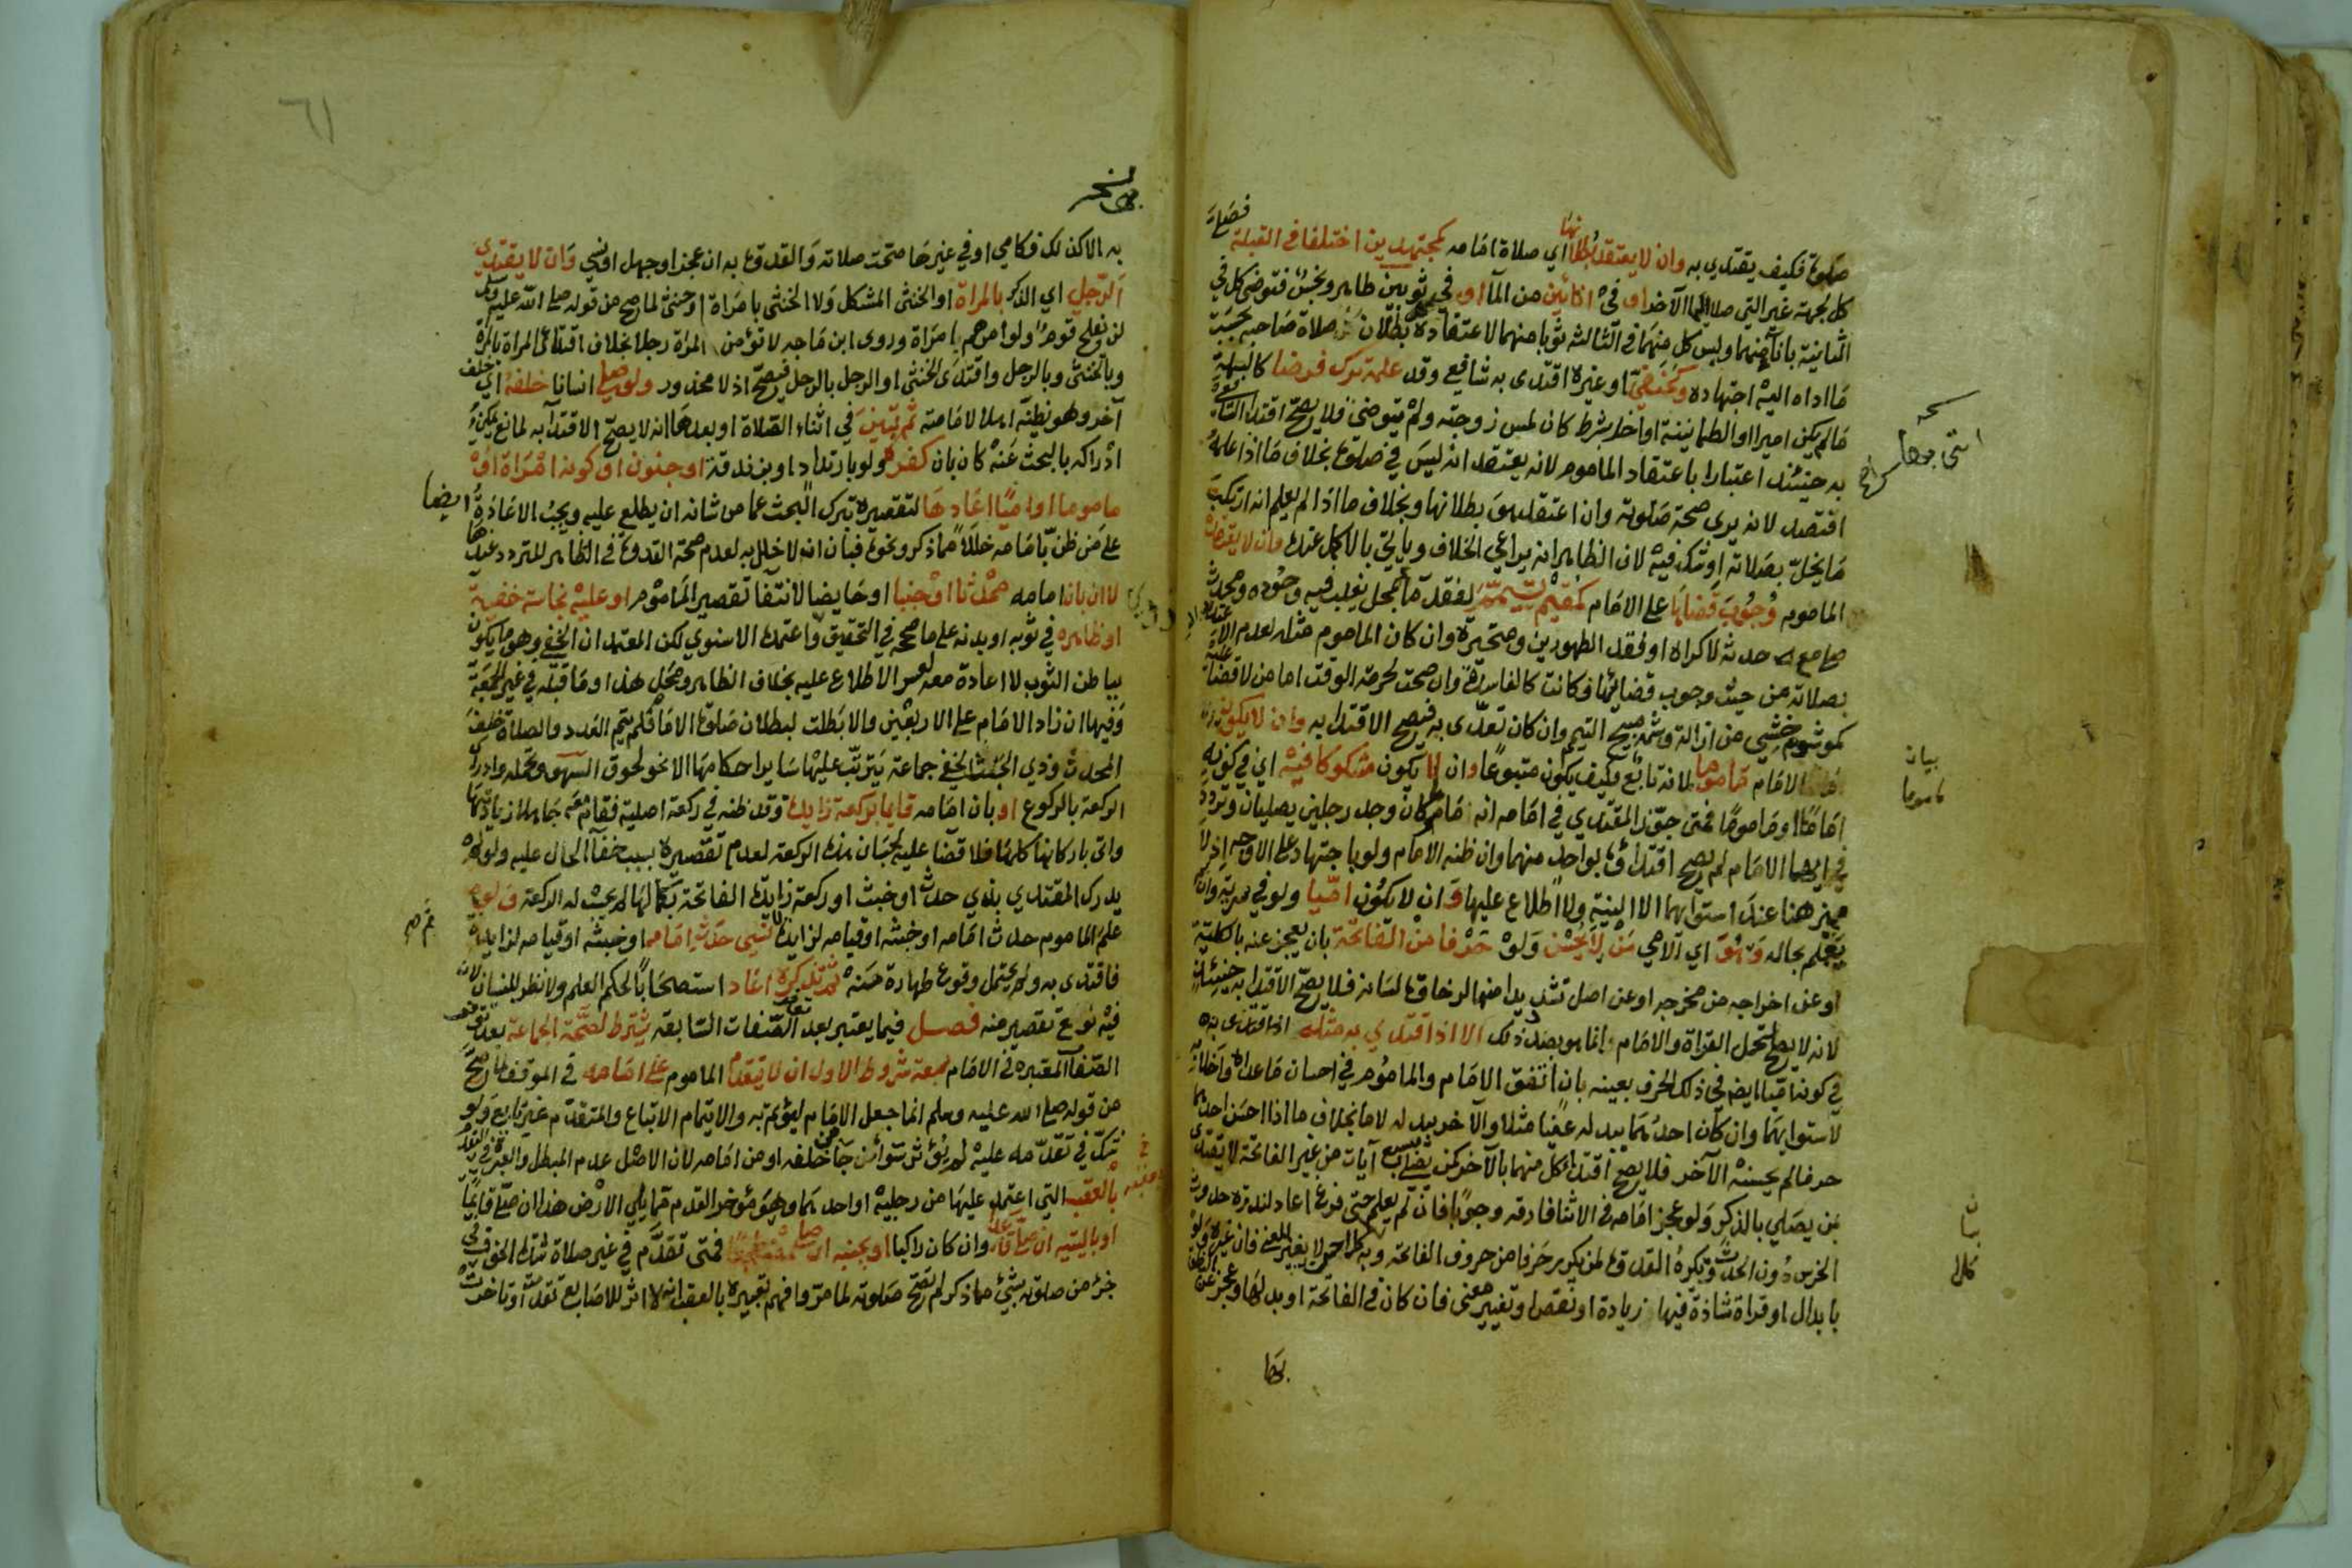 صلوة فكيف يقتدي به وان لا يعتقد بطلانها اي صلاة امامه كمجتهدين اختلفا في القبلة فصلى
كل لجهة غير التي صلا اليها الآخر او في انائين من الماء او في ثوبين طاهر ونجس فتوضى كل في
الثانية باناء منهما ولبس كل منهما في الثالثة ثوبا منهما لاعتقاده بطلان صلاة صاحبه بحسب
ما اداه اليه اجتهاده وكحنفي او غيره اقتدى به شافعي وقد علمه ترك فرضا كالبسملة
مالم يكن اميرا او الطمانينة او اخل بشرط كان لمس زوجته ولم يتوضى فلا يصح اقتدا الشافعي
به حينئذ اعتبارا باعتقاد الماموم لانه يعتقد انه ليس في صلوة بخلاف ما اذا علمه
افتصد لانه يرى صحة صلوته وان اعتقد هو بطلانها وبخلاف ما اذا لم يعلم انه ارتكب
ما يخل بصلاته او شك فيه لان الظاهر انه يراعي الخلاف وياتي بالاكمل عنده وان لا يعتقد
الماموم وجوب قضايها على الامام كمقيم تيمم لفقد ماء بمحل يغلب فيه وجوده ومحدث
صلى مع حدثه لاكراه او لفقد الطهورين ومتحيرة وان كان الماموم مثله لعدم الاعتداد
بصلاته من حيث وجوب قضائها فكانت كالفاسدة وان صحت لحرمة الوقت اما من لا قضا عليه
كموشوم خشي من ازالة وشمه مبيح التيمم وان كان تعدى به فيصح الاقتدا به وان لا يكون
الامام ماموما لانه تابع فكيف يكون متبوعا وان لا يكون مشكوكا فيه اي في كونه
اماما او ماموما فمتى جوز المقتدي في امامه انه ماموم كان وجد رجلين يصليان وتردد
في ايهما الامام لم يصح اقتداؤه بواحد منهما وان ظنه الامام ولو باجتهاد على الاوجه اذ لا
مميز هنا عند استوائهما الا النية ولا اطلاع عليها وان لا يكون اميا ولو في سرية وان لم
يعلم بحاله وهو اي الامي من لا يحسن ولو حرفا من الفاتحة بان يعجز عنه بالكلية
او عن اخراجه من مخرجه او عن اصل تشديدا منها لرخاوة لسانه فلا يصح الاقتدا به حينئذ
لانه لا يصلح لتحمل القراة والامام انما هو بصدد ذلك الا اذا اقتدى به مثله
في كونه اميا ايضا في ذلك الحرف بعينه بان اتفق الامام والماموم في احسان ما عداه
لاستوائهما وان كان احدهما يبدله عينا مثلا والآخر يبدله لاما بخلاف ما اذا احسن احدهما
حرفا لم يحسنه الآخر فلا يصح اقتدا كل منهما بالآخر كمن يصلي بسبع آيات من غير الفاتحة لا يقتدي
بمن يصلي بالذكر ولو عجز امامه في الاثنا فارقه وجوبا فان لم يعلم حتى فرغ اعاد لندرة حدوث
الخرس دون الحدث وتكره القدوة لمن يكرر حرفا من حروف الفاتحة وبه لحن لا يغير المعنى فان غيره ولو
بابدال او قراة شاذة فيها زيادة او نقص او تغيير معنى فان كان في الفاتحة او بدلها وعجز عن
بها
انثى بوها
بيان
ماموما
بيان
٦١
به الا كذلك فكامي او في غيرها صحت صلاته والقدوة به ان عجز او جهل او نسي وان لا يقتدي
الرجل اي الذكر بالمراة او الخنثى المشكل ولا الخنثى بامراة او خنثى لما صح من قوله صلى الله عليه وسلم
لن يفلح قوم ولوا امرهم امراة وروى ابن ماجه لا تؤمن المراة رجلا بخلاف اقتدا المراة بالمراة
وبالخنثى وبالرجل واقتدى الخنثى او الرجل بالرجل فيصح اذ لا محذور ولو صلى انسانا خلفه اي خلف
آخر وهو يظنه اهلا لامامته ثم تبين في اثناء الصلاة او بعدها انه لا يصح الاقتدا به لمانع يمكن
ادراكه بالبحث عنه كان بان كفره ولو بارتداد او بزندقة او جنون او كونه امراة او
ماموما او اميا اعادها لتقصيره بترك البحث عما من شانه ان يطلع عليه ويجب الاعادة ايضا
على من ظن بامامه خللا مما ذكر ونحوه فبان انه لا خلل به لعدم صحة القدوة في الظاهر للتردد عندها
لا ان بان امامه محدثا او جنبا او حايضا لانتفا تقصير الماموم او عليه نجاسة خفية
او ظاهره في ثوبه او بدنه على ما صححه في التحقيق واعتمده الاسنوي لكن المعتمد ان الخفي وهو ما يكون
بباطن الثوب لا اعادة معه لعسر الاطلاع عليه بخلاف الظاهر ومحل هذا وما قبله في غير الجمعة
وفيها ان زاد الامام على الاربعين والا بطلت لبطلان صلوة الامام فلم يتم العدد والصلاة خلف
المحدث وذي الخبث الخفي جماعة يترتب عليها ساير احكامها الا نحو لحوق السهو وتحمله وادراك
الركعة بالركوع او بان امامه قايما بركعة زايدة وقد ظنه في ركعة اصلية فقام معه جاهلا زيادتها
واتى باركانها كلها فلا قضا عليه لحسبان هذه الركعة لعدم تقصيره بسبب خفا الحال عليه ولو لم
يدرك المقتدي بذي حدث او خبث او ركعة زايدة الفاتحة بكمالها لم تحسب له الركعة ولو
علم الماموم حدث امامه او خبثه او قيامه لزايدة ثم نسي حدث امامه او خبثه او قيامه لزايدة
فاقتدى به ولم يحتمل وقوع طهارة منه ثم تذكره اعاد استصحابا لحكم العلم ولا نظر للنسيان لانه
فيه نوع تقصير منه فصل فيما يعتبر بعد الصفات السابقة يشترط لصحة الجماعة بعد توفر
الصفات المعتبرة في الامام سبعة شروط الاول ان لا يتقدم الماموم على امامه في الموقف لما صح
من قوله صلى الله عليه وسلم انما جعل الامام ليؤتم به والايتمام الاتباع والمتقدم غير تابع ولو
شك في تقدمه عليه لم يؤثر سواء من جاء خلفه او من امامه لان الاصل عدم المبطل والعبرة في التقدم
بالعقب التي اعتمد عليها من رجليه او احديهما وهو مؤخر القدم مما يلي الارض هذا ان صلى قائما
او بالييه ان صلى قاعدا وان كان راكبا او بجنبه ان صلى مضطجعا فمتى تقدم في غير صلاة شدة الخوف في
جزء من صلوته بشئ مما ذكر لم تصح صلوته لما مر وافهم تعبيره بالعقب انه لا اثر للاصابع تقدمت او تاخرت